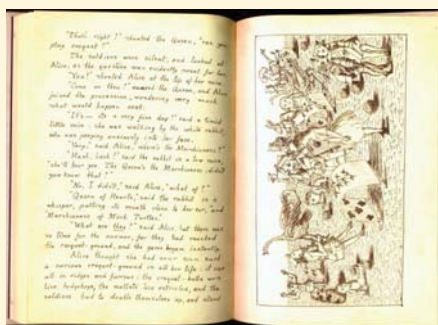 "That's right!" shouted the Queen, "can you
play croquet?"
The soldiers were silent, and looked at
Alice, as the question was evidently meant for her.
"Yes!" shouted Alice at the top of her voice.
"Come on then!" roared the Queen, and Alice
joined the procession, wondering very much
what would happen next.
"It's—its a very fine day!" said a timid
little voice: she was walking by the white rabbit,
who was peeping anxiously into her face.
"Very," said Alice, "where's the Marchioness?"
"Hush, hush!" said the rabbit in a low voice,
"she'll hear you. The Queen's the Marchioness: didn't
you know that?"
"No, I didn't," said Alice, "what of?"
"Queen of Hearts," said the rabbit in a
whisper, putting its mouth close to her ear, "and
Marchioness of Mock Turtles."
"What are they?" said Alice, but there was
no time for the answer, for they had reached
the croquet-ground, and the game began instantly.
Alice thought she had never seen such
a curious croquet-ground in all her life: it was
all in ridges and furrows: the croquet-balls were
live hedgehogs, the mallets live ostriches, and the
soldiers had to double themselves up, and stand